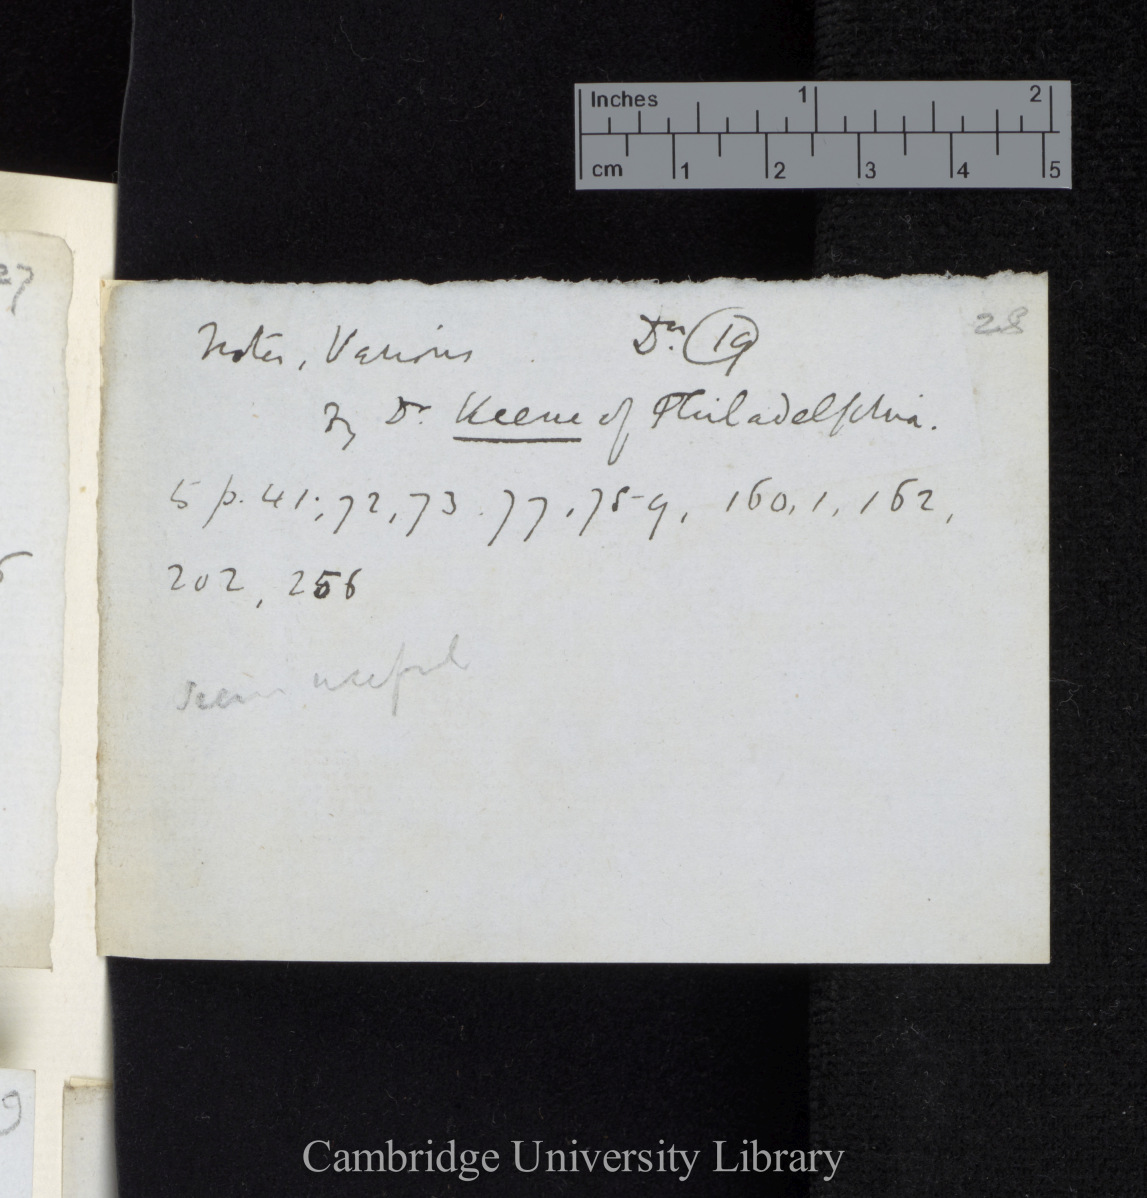 Inches 1 2
cm 1 2 3 4 5
27
28
Notes, Various Dn. 19
By Dr. Keene of Philadelphia.
5 p. 41; 72, 73. 77, 78-9, 160, 1, 162,
202, 256
Seem useful
9
Cambridge University Library